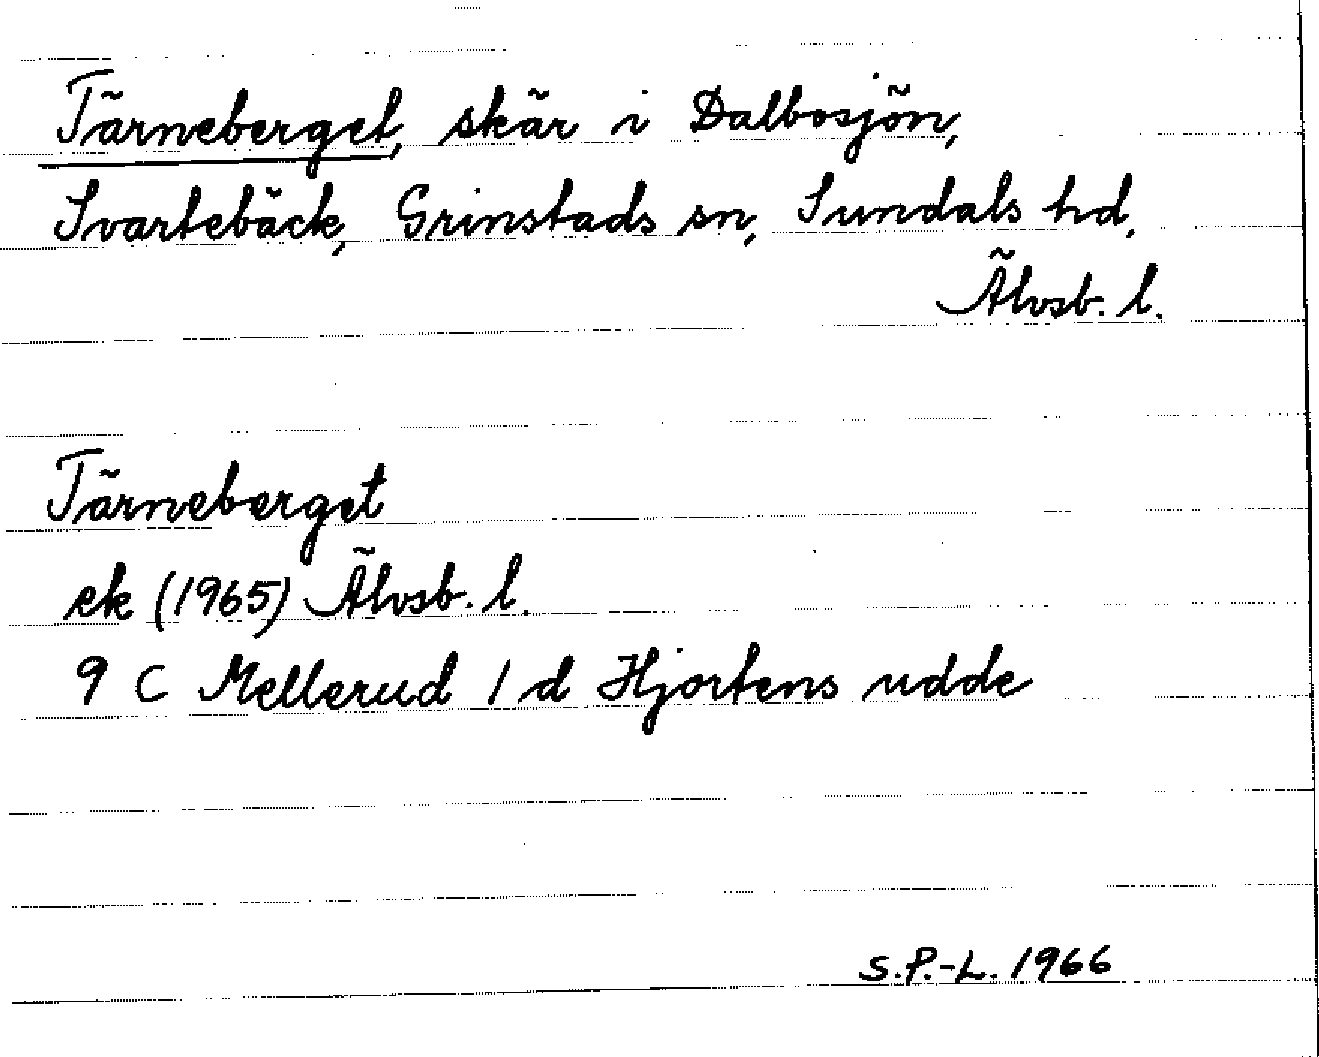 Tärneberget, skär i Dalbosjön,
Svartebäck, Grinstads sn, Sundals hd,
Älvsb. l.
Tärneberget
ek (1965) Älvsb. l.
9 C Mellerud 1 d Hjortens udde
S.P.-L. 1966